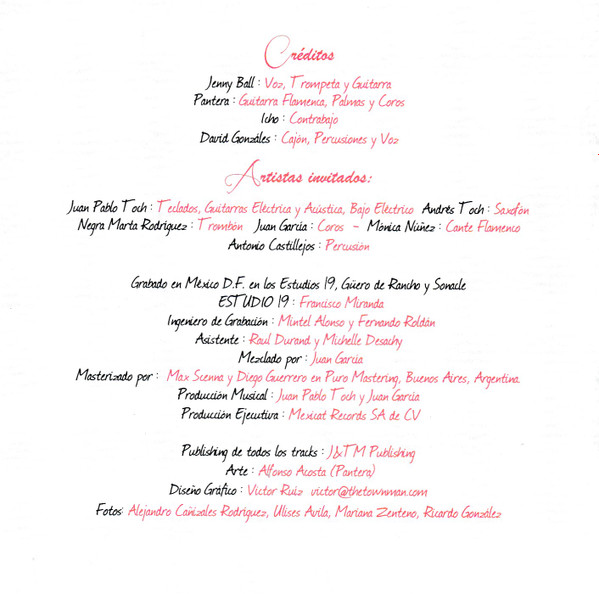 Créditos
Jenny Ball : Voz, Trompeta y Guitarra
Pantera : Guitarra Flamenca, Palmas y Coros
Icho : Contrabajo
David Gonzáles : Cajón, Percusiones y Voz
Artistas invitados:
Juan Pablo Toch : Teclados, Guitarras Eléctrica y Aústica, Bajo Eléctrico Andrés Toch : Saxofón
Negra Marta Rodriguez : Trombón Juan García : Coros - Mónica Núñez : Cante Flamenco
Antonio Castillejos : Percusión
Grabado en México D.F. en los Estudios 19, Güero de Rancho y Sonacle
ESTUDIO 19 : Francisco Miranda
Ingeniero de Grabación : Mintel Alonso y Fernando Roldán
Asistente : Raul Durand y Michelle Desachy
Mezclado por : Juan Garcia
Masterizado por : Max Scenna y Diego Guerrero en Puro Mastering, Buenos Aires, Argentina.
Producción Musical : Juan Pablo Toch y Juan Garcia
Producción Ejecutiva : Mexicat Records SA de CV
Publishing de todos los tracks : J&TM Publishing
Arte : Alfonso Acosta (Pantera)
Diseño Gráfico : Victor Ruiz victor@thetownman.com
Fotos: Alejandro Cañizales Rodriguez, Ulises Avila, Mariana Zenteno, Ricardo González